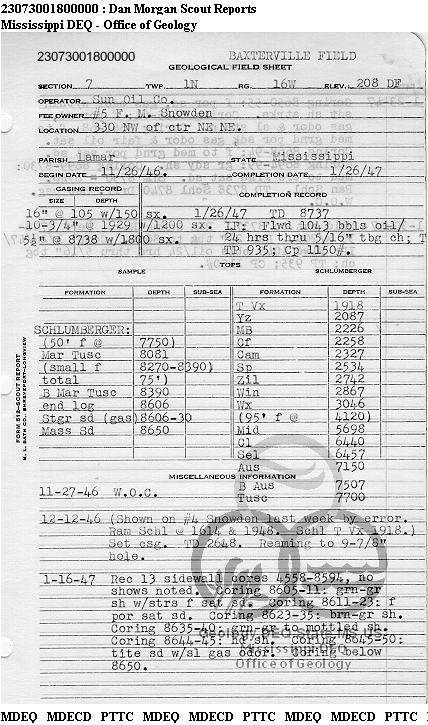 23073001800000 : Dan Morgan Scout Reports
Mississippi DEQ - Office of Geology
23073001800000 BAXTERVILLE FIELD
GEOLOGICAL FIELD SHEET
SECTION 7 TWP. 1N RG. 16W ELEV.: 208 DF
OPERATOR Sun Oil Co.
FEE OWNER #5 F. M. Snowden
LOCATION 330 NW of ctr NE NE.
PARISH lamar STATE Mississippi
BEGIN DATE 11/26/46. COMPLETION DATE 1/26/47
CASING RECORD COMPLETION RECORD
SIZE DEPTH
16" @ 105 w/150 sx. 1/26/47 TD 8737
10-3/4" @ 1929 w/1200 sx. LR: Flwd 1043 bbls oil/
5½" @ 8738 w/1800 sx. 24 hrs thru 5/16" tbg ch; T
TP 935; Cp 1150#.
TOPS
SAMPLE SCHLUMBERGER
FORMATION DEPTH SUB-SEA FORMATION DEPTH SUB-SEA
T Vx 1918
Yz 2087
SCHLUMBERGER: MB 2226
(50' f @ 7750) Cf 2258
Mar Tusc 8081 Cam 2327
(small f 8270-8390) Sp 2534
total 75') Zil 2742
B Mar Tusc 8390 Win 2867
end log 8606 Wx 3046
Stgr sd (gas) 8606-30 (95' f @ 4120)
Mass Sd 8650 Mid 5698
Cl 6440
Sel 6457
Aus 7150
MISCELLANEOUS INFORMATION
B Aus 7507
11-27-46 W.O.C. Tusc 7700
12-12-46 (Shown on #4 Snowden last week by error.
Ram Schl @ 1614 & 1948. Schl T Vx 1918.)
Set csg. TD 2648. Reaming to 9-7/8"
hole.
1-16-47 Rec 13 sidewall cores 4558-8594, no
shows noted. Coring 8605-11: grn-gr
sh w/strs f sat sd. Coring 8611-23: f
por sat sd. Coring 8623-35: brn-gr sh.
Coring 8635-40: grn-gr to mottled sh.
Coring 8644-45: hd sh. Coring 8645-50:
tite sd w/sl gas odor. Coring below
8650.
Mississippi DEQ
Office of Geology
FORM 512—SCOUT REPORT
MDEQ MDECD PTTC MDEQ MDECD PTTC MDEQ MDECD PTTC